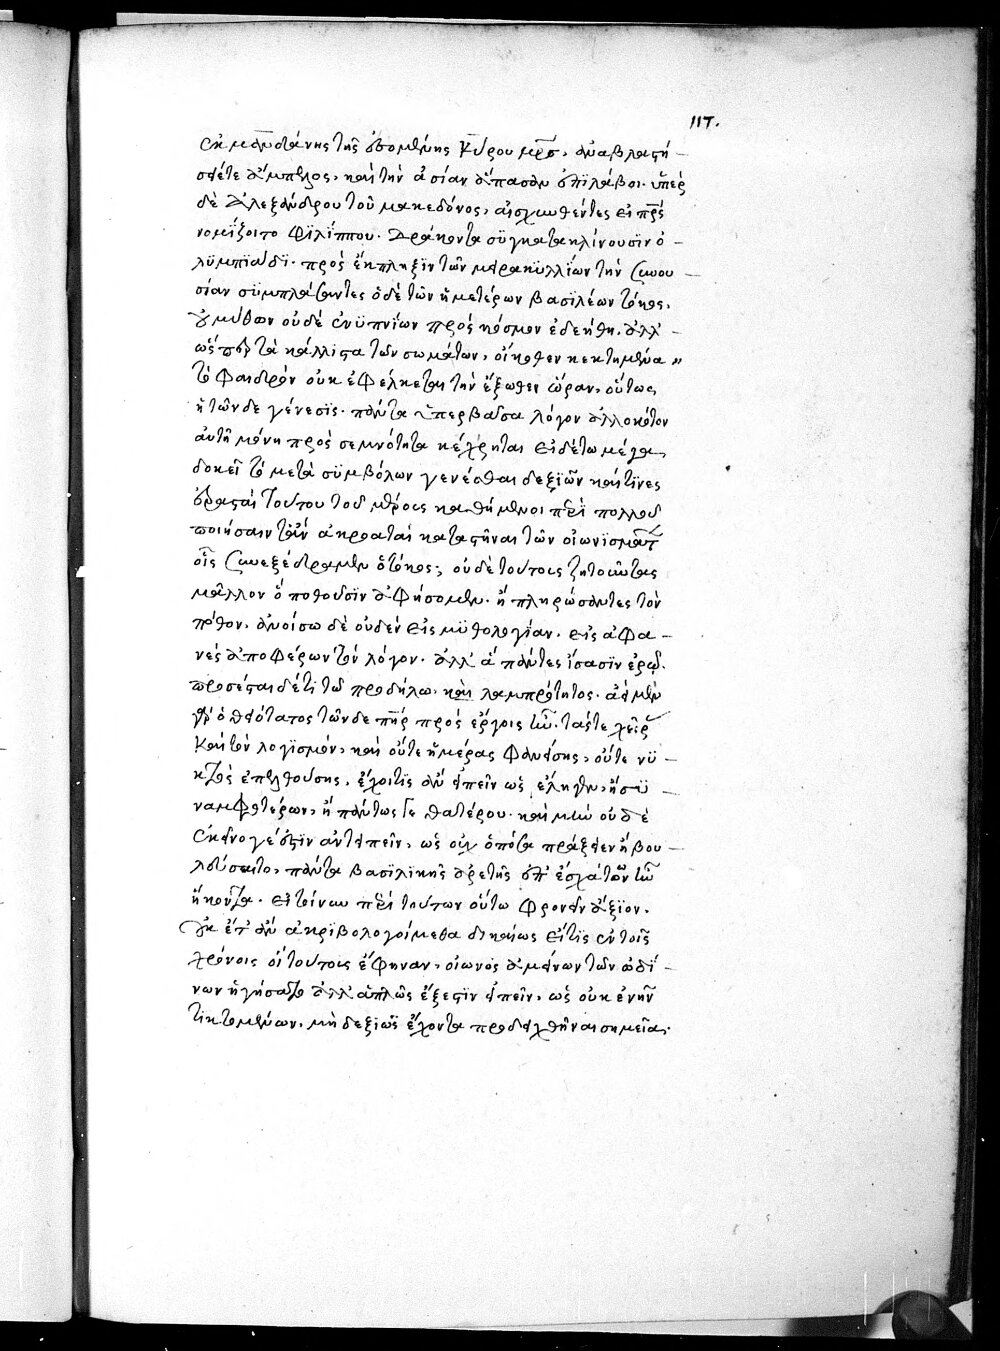 117.
ἐκ μανδάνης τῆς ἐσομένης κύρου μρς, ἀναβλαστή-
σειέ τε ἄμπελος, καὶ τὴν ἀσίαν ἅπασαν ἐπιλάβοι. ὑπὲρ
δὲ ἀλεξάνδρου τοῦ μακεδόνος, αἰσχυνθέντες εἰ πρς
νομίζοιτο φιλίππου. δράκοντα συγκατακλίνουσιν ὀ-
λυμπιάδι. πρὸς ἔκπληξιν τῶν μειρακυλλίων τὴν
συμπλάσαντες ὁ δὲ τῶν ἡμετέρων βασιλέων τόκος,
μύθων οὐδὲ ἐνυπνίων πρὸς κόσμον ἐδεήθη. ἀλλ'
ὥσπερ τὰ κάλλιστα τῶν σωμάτων, οἴκοθεν κεκτημένα
τὸ φαιδρὸν οὐκ ἐφέλκεται τὴν ἔξωθεν ὥραν, οὕτως
ἡ τῶνδε γένεσις. πάντα ὑπερβᾶσα λόγον ἀλλοκότον
αὐτὴ μόνη πρὸς σεμνότητα κέχρηται εἰ δέ τω μέγα
δοκεῖ τὸ μετὰ συμβόλων γενέσθαι δεξιῶν καί τινες
ἐρασταὶ τούτου τοῦ μέρους καθήμενοι περὶ πολλοῦ
ποιήσαιντ' ἂν ἀκροαταὶ καταστῆναι τῶν οἰωνισμάτ
οἷς συνεξέδραμεν ὁ τόκος; οὐδὲ τούτους ζητοῦντας
μᾶλλον ὃ ποθοῦσιν ἀφήσομεν. ἢ πληρώσαντες τὸν
πόθον. ἀνοίσω δὲ οὐδὲν εἰς μυθολογίαν. εἰς ἀφα-
νὲς ἀποφέρων τὸν λόγον. ἀλλ' ἃ πάντες ἴσασιν ἐρῶ.
πρόσεσται δέ τι τῶ προδήλω, καὶ λαμπρότητος. ἀεὶ μὲν
γὰρ ὁ θειότατος τῶνδε πηρ πρὸς ἔργοις ἦν. τάς τε χεῖρ
καὶ τὸν λογισμόν, καὶ οὔτε ἡμέρας φανείσης, οὔτε νυ-
κτὸς ἐπελθούσης, ἔχοι τις ἂν εἰπεῖν ὡς ἔληγεν, ἢ συ-
ναμφοτέρων, ἢ πάντως γε θατέρου. καὶ μὴν οὐδὲ
ἐκεῖνο γέ ἐστιν ἀντειπεῖν, ὡς οὐχ ὁπότε πράξειεν ἢ βου-
λεύσαιτο, πάντα βασιλικῆς ἀρετῆς ἐπ' ἔσχατον ἦν
ἥκοντα. εἰ τοίνυν περὶ τούτων οὕτω φρονεῖν ἄξιον.
οὐκ ἔτ' ἂν ἀκριβολογοίμεθα δικαίως εἴ τις ἐν τοῖς
χρόνοις οἳ τούτους ἔφηναν, οἰωνὸς ἀμείνων τῶν ὠδί-
νων ἡγήσατο ἀλλ' ἁπλῶς ἔξεστιν εἰπεῖν, ὡς οὐκ ἐνῆν
τικτομένων, μὴ δεξιῶς ἔχοντα προδειχθῆναι σημεῖα.